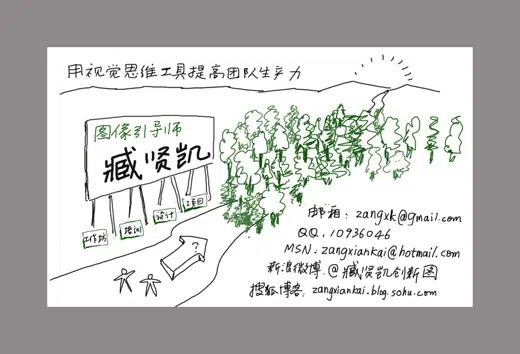 用视觉思维工具提高团队生产力
图像引导师
臧贤凯
工作坊
培训
设计
?
邮箱：zangxk@gmail.com
QQ：10936046
MSN：zangxiankai@hotmail.com
新浪微博：@臧贤凯创新图
搜狐博客：zangxiankai.blog.sohu.com